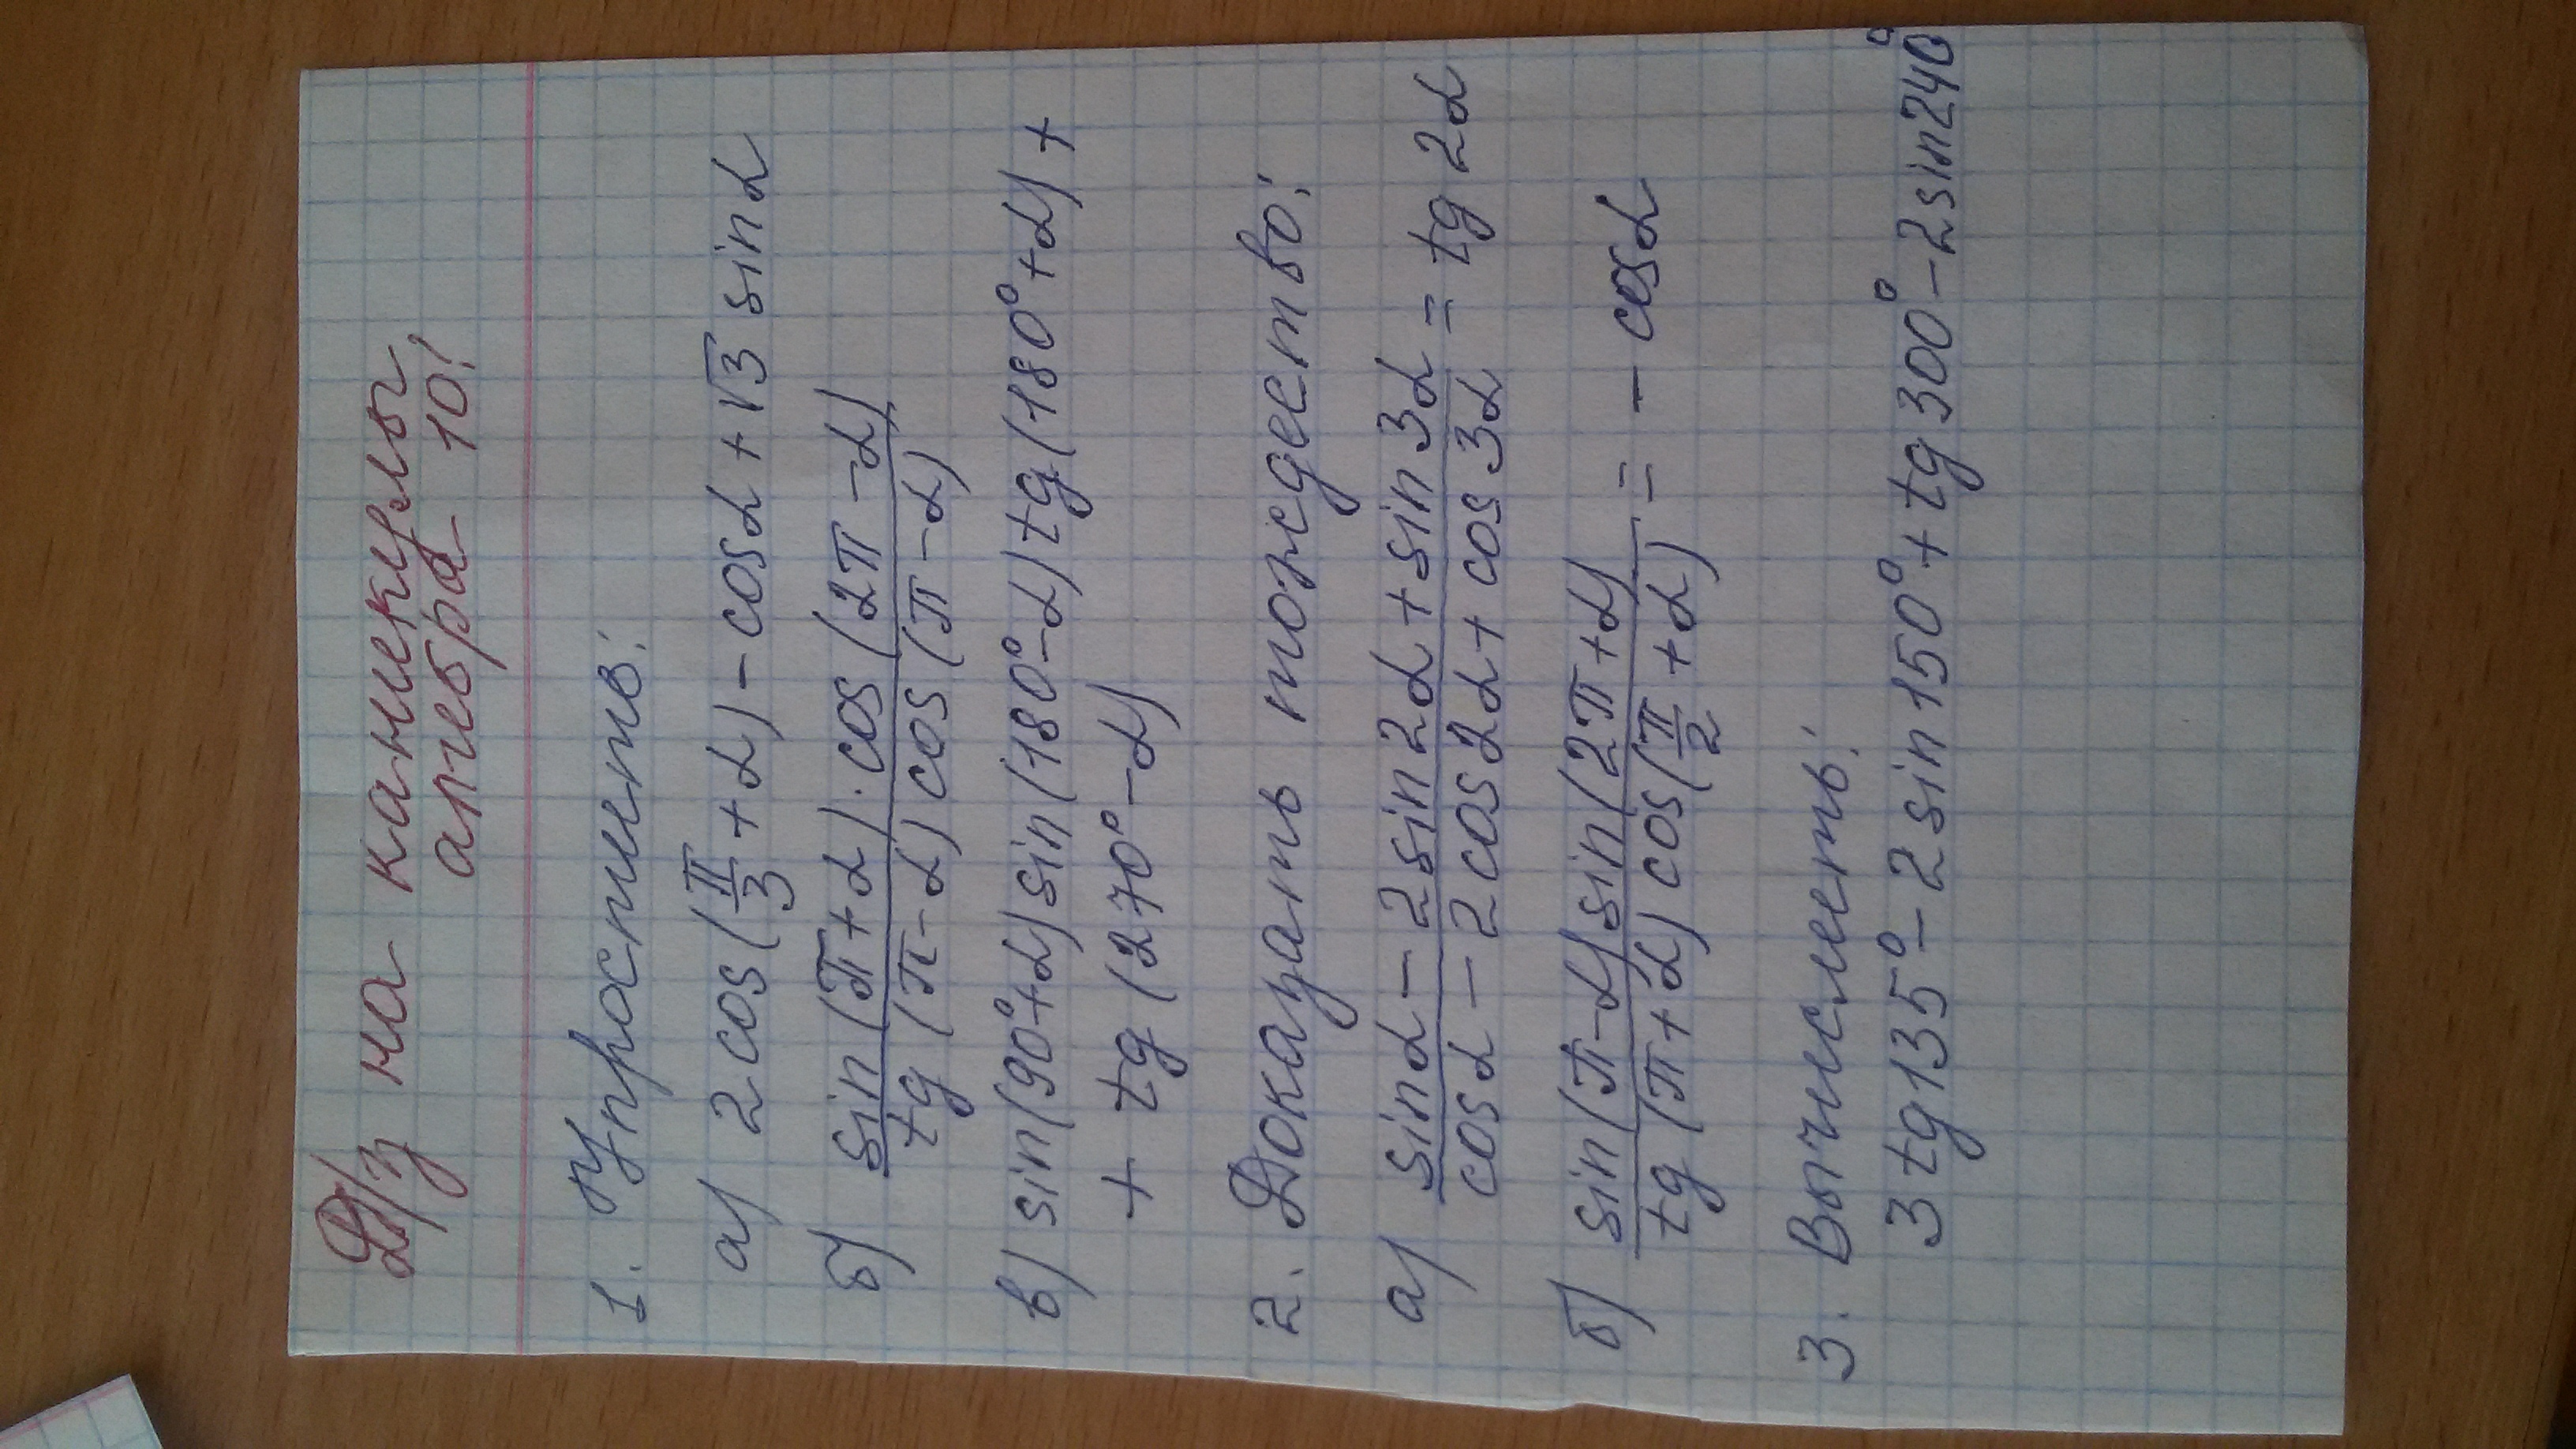 Д/з на каникулы
алгебра 10!
1. Упростить:
а) 2 cos (π/3 + α) - cos α + √3 sin α
б) sin (π + α) · cos (2π - α) / tg (π - α) cos (π - α)
в) sin (90° + α) sin (180° - α) tg (180° + α) +
+ tg (270° - α)
2. Доказать тождество:
а) sin α - 2 sin 2α + sin 3α / cos α - 2 cos 2α + cos 3α = tg 2α
б) sin (π - α) sin (2π + α) / tg (π + α) cos (π/2 + α) = - cos α
3. Вычислить:
3 tg 135° - 2 sin 150° + tg 300° - 2 sin 240°